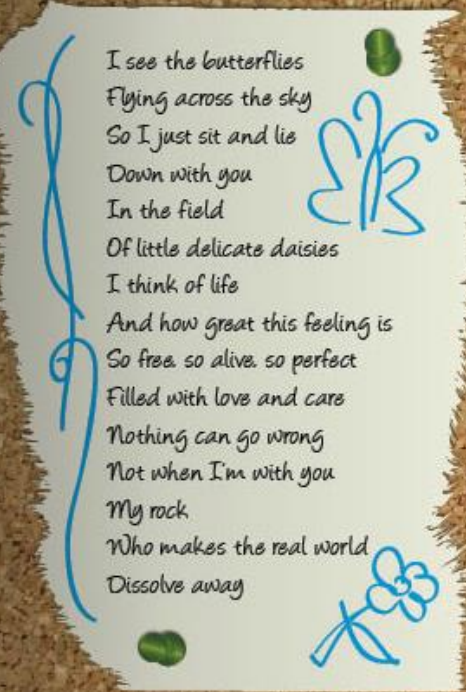 I see the butterflies
Flying across the sky
So I just sit and lie
Down with you
In the field
Of little delicate daisies
I think of life
And how great this feeling is
So free, so alive, so perfect
Filled with love and care
Nothing can go wrong
Not when I'm with you
My rock
Who makes the real world
Dissolve away